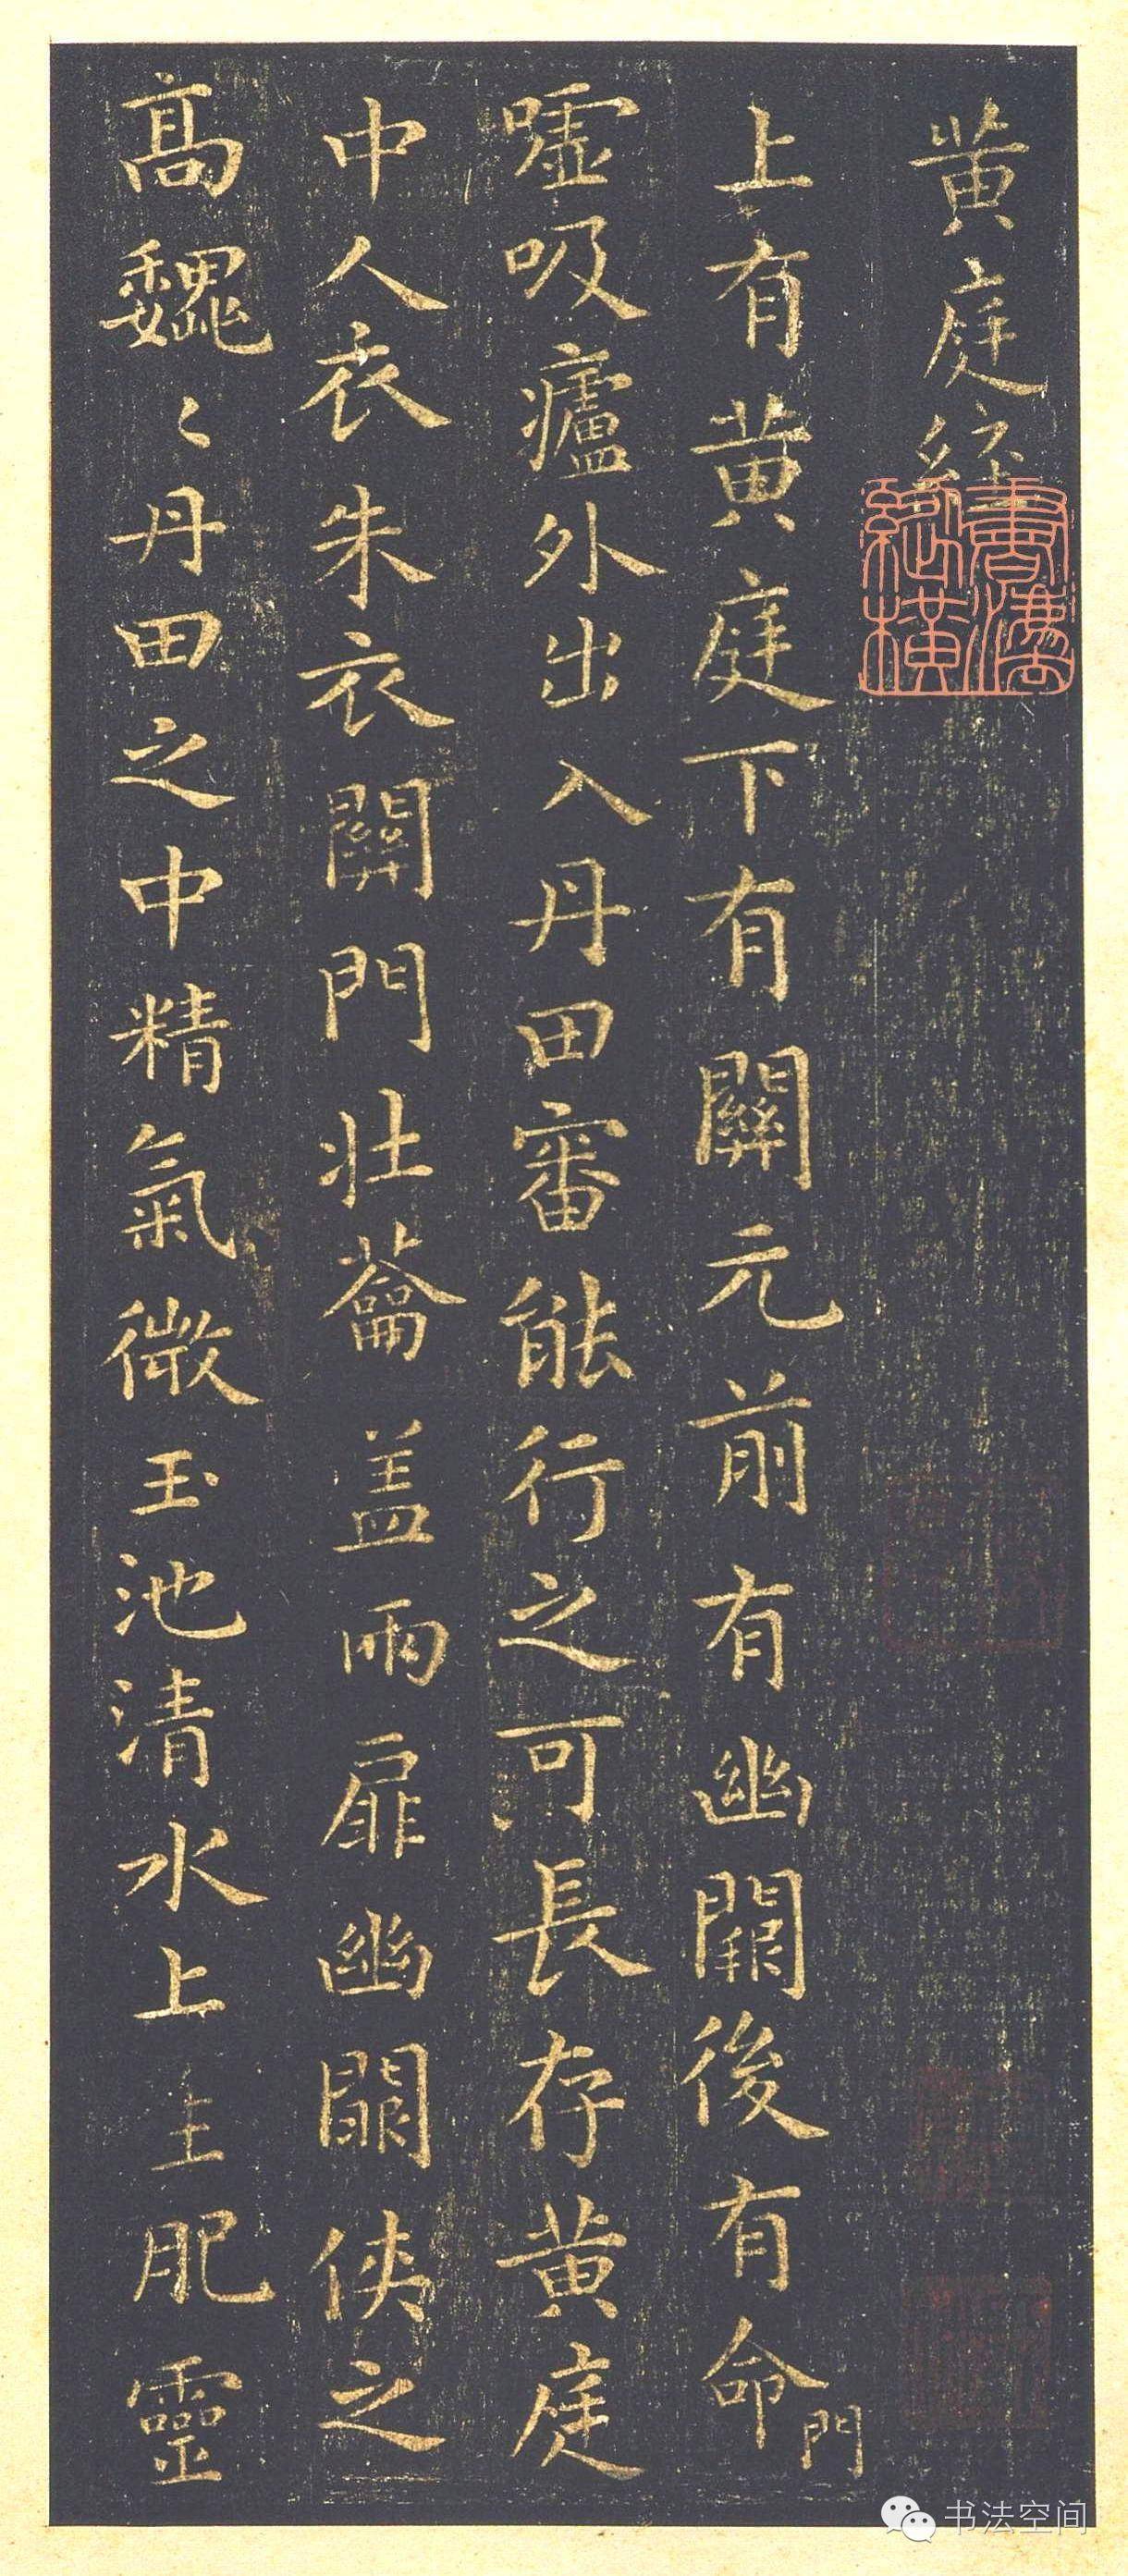 黃庭經
上有黃庭下有關元前有幽闕後有命門
噓吸廬外出入丹田審能行之可長存黃庭
中人衣朱衣關門壯蘥盖兩扉幽闕俠之
高魏〻丹田之中精氣微玉池清水上主肥靈
書法縱橫
书法空间